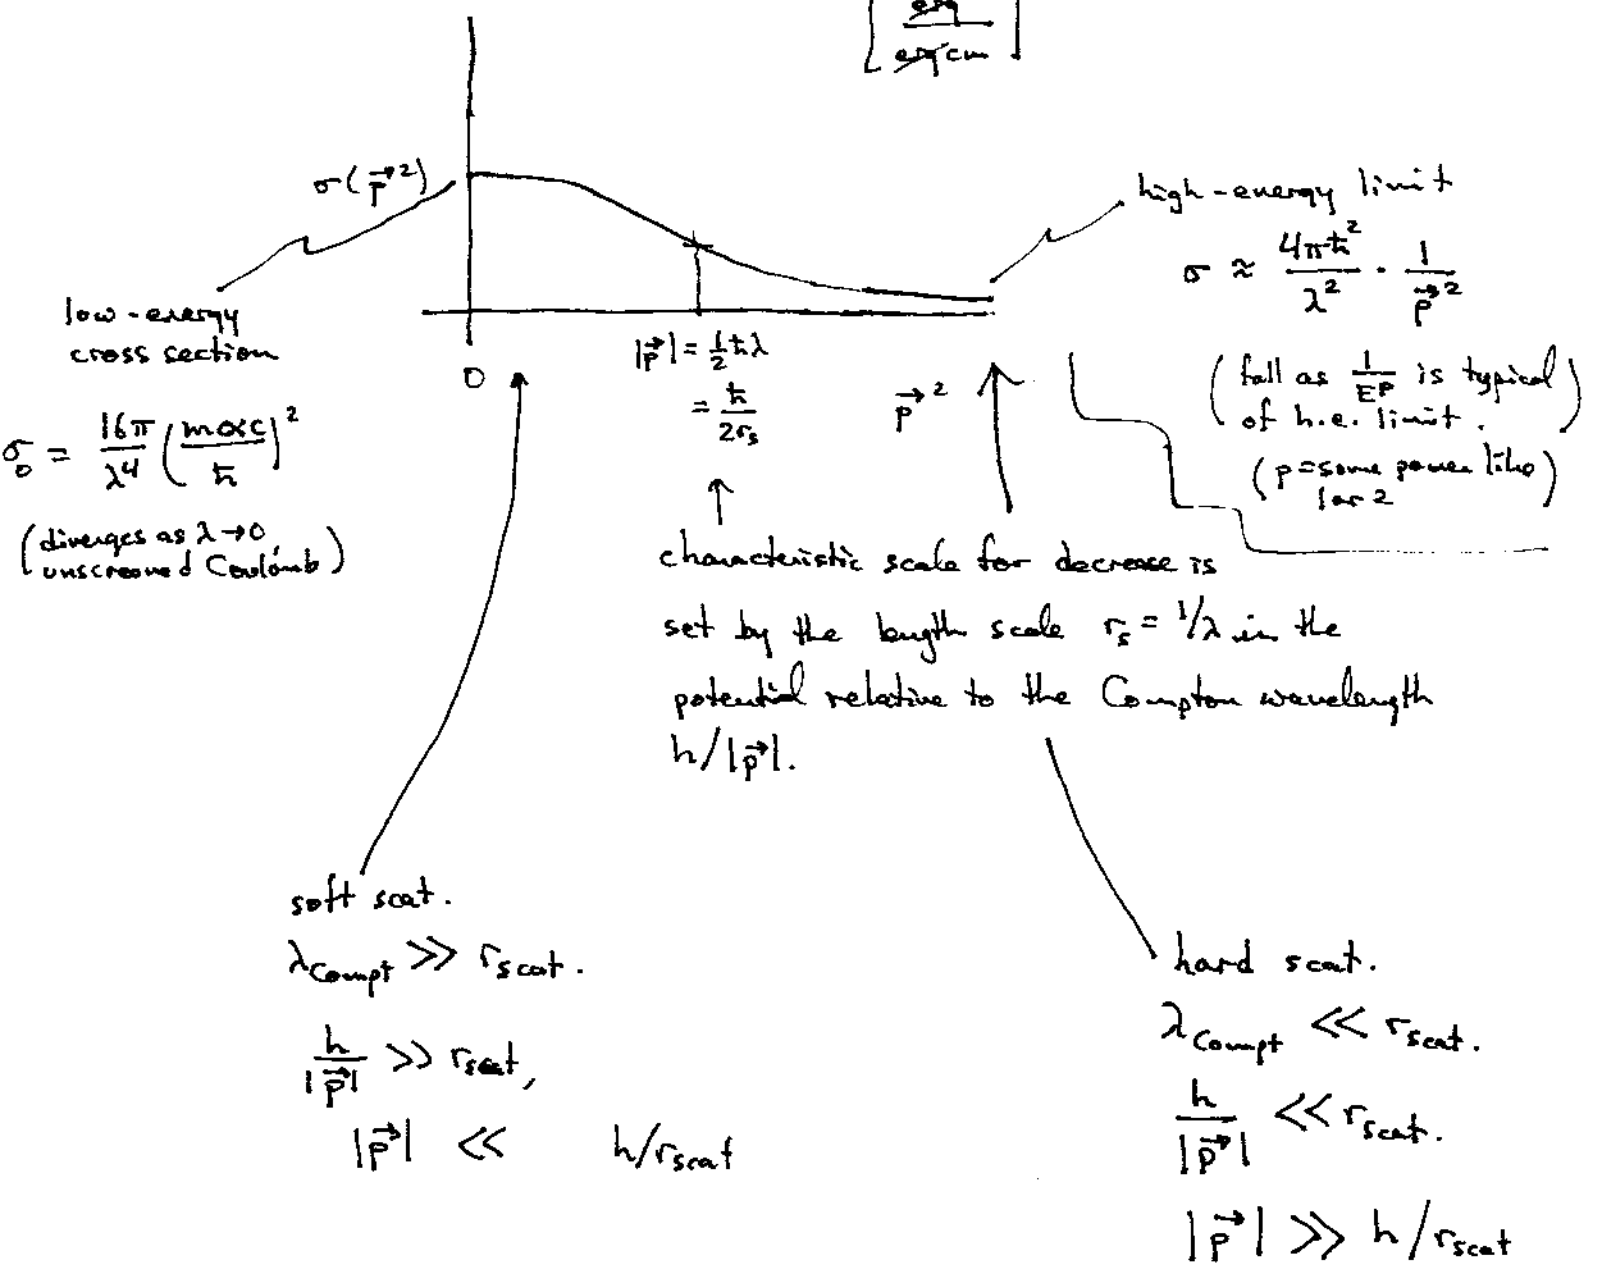 [ erg / erg cm ]
σ(p⃗ ²)
high-energy limit
σ ≈ 4πħ²/λ² · 1/p⃗ ²
(fall as 1/E^p is typical
of h.e. limit.)
(p = some power like
1 or 2)
low-energy
cross section
σ₀ = 16π/λ⁴ (mαc/ħ)²
(diverges as λ→0,
unscreened Coulomb)
0
|p⃗| = ½ħλ
= ħ/2rₛ
p⃗ ²
characteristic scale for decrease is
set by the length scale rₛ = 1/λ in the
potential relative to the Compton wavelength
h/|p⃗|.
soft scat.
λ_Compt ≫ r_scat.
h/|p⃗| ≫ r_scat,
|p⃗| ≪ h/r_scat
hard scat.
λ_Compt ≪ r_scat.
h/|p⃗| ≪ r_scat.
|p⃗| ≫ h/r_scat